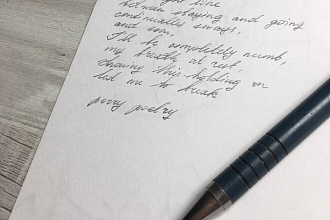 line
between staying and going
continually sways,
and soon,
I'll be completely numb,
my breath at rest,
this holding on
led me to break
perry poetry